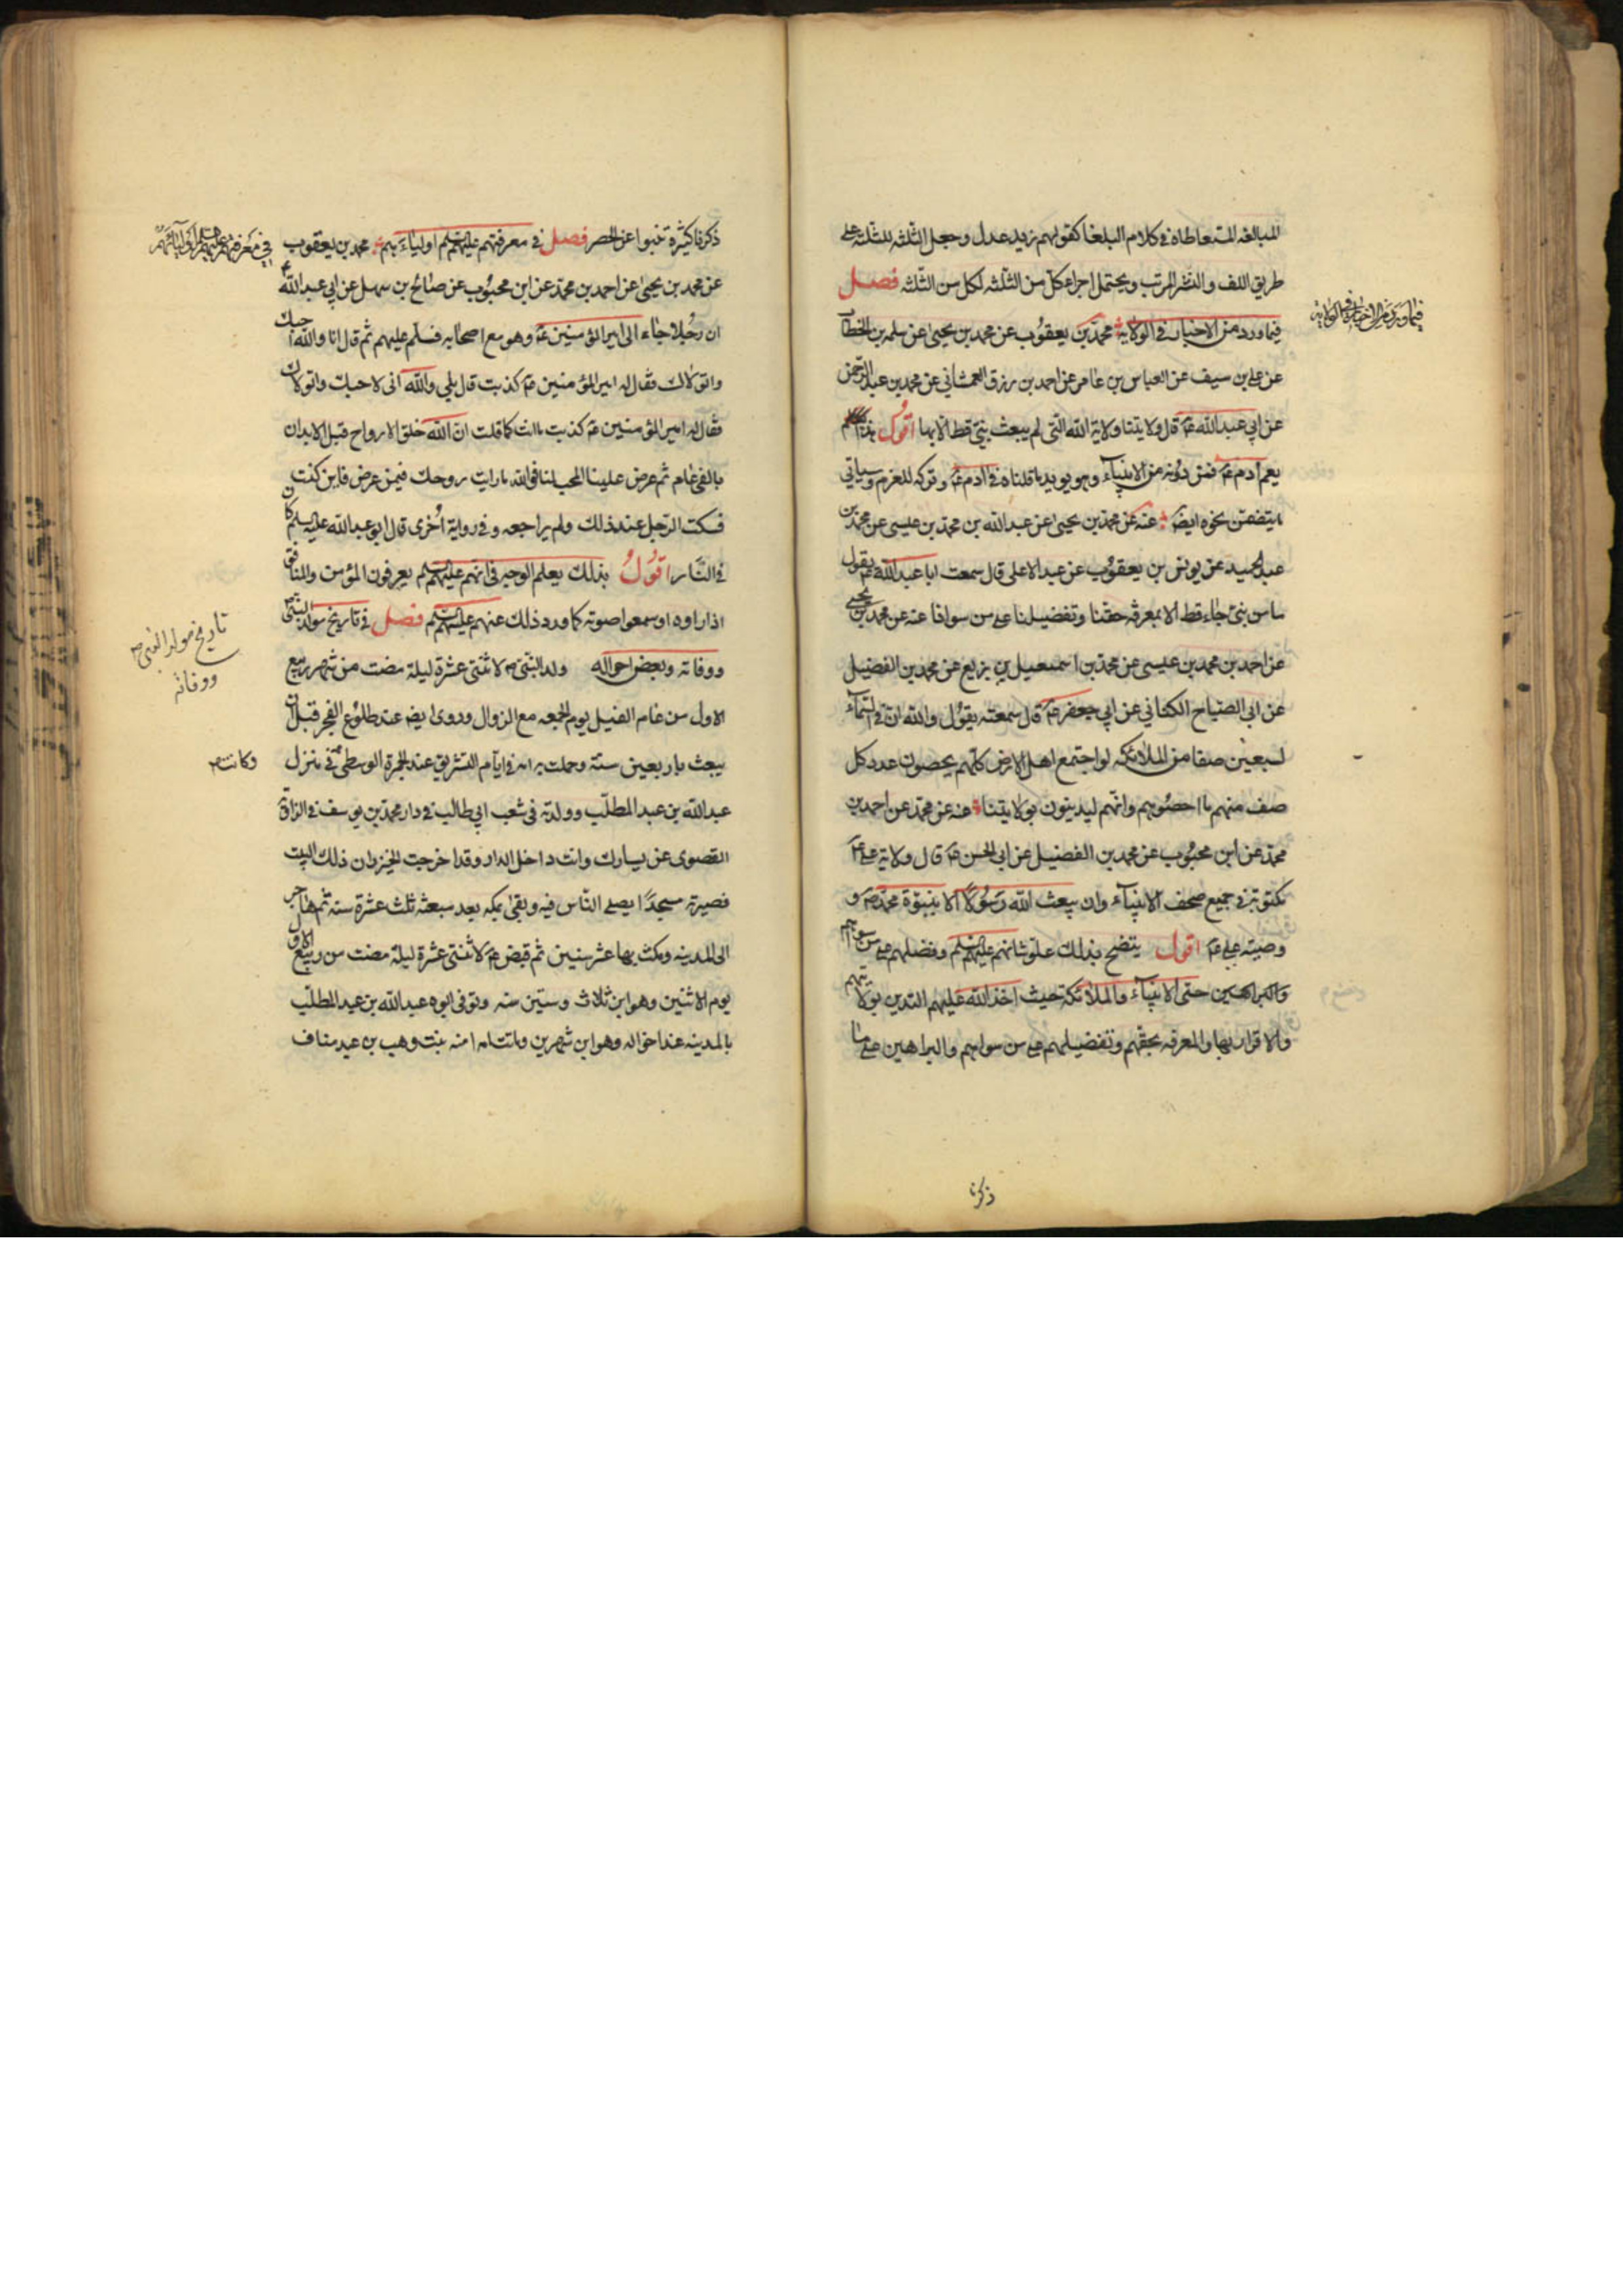 المبالغه المتعاطاه فى كلام البلغا كقولهم زيد عدل وجعل الثلثه للثلثه على
طريق اللف والنشر المرتب ويحتمل اجراء كل من الثلثه لكل من الثلثه فصل
فيما ورد من الاخبار فى الولاية محمد بن يعقوب عن محمد بن يحيى عن سلمه بن الخطاب
فيما ورد من الاخبار فى الولايه
عن على بن سيف عن العباس بن عامر عن احمد بن رزق الغمشانى عن محمد بن عبد الرحمن
عن ابى عبد الله ع قال ولايتنا ولاية الله التى لم يبعث نبى قط الا بها اقول هذا
يعم ادم ع فمن دونه من الانبياء وهو يويد ما قلناه فى ادم ع وتركه للعزم وسياتى
ما يتضمن نحوه ايضا عنه عن محمد بن يحيى عن عبد الله بن محمد بن عيسى عن محمد بن
عبد الحميد عن يونس بن يعقوب عن عبد الاعلى قال سمعت ابا عبد الله ع يقول
ما من نبى جاء قط الا بمعرفة حقنا وتفضيلنا على من سوانا عنه عن محمد بن يحيى
عن احمد بن محمد بن عيسى عن محمد بن اسمعيل بن بزيع عن محمد بن الفضيل
عن ابى الصباح الكنانى عن ابى جعفر ع قال سمعته يقول والله ان فى السماء
لسبعين صفا من الملائكه لو اجتمع اهل الارض كلهم يحصون عدد كل
صف منهم ما احصوهم وانهم ليدينون بولايتنا عنه عن محمد عن احمد بن
محمد عن ابن محبوب عن محمد بن الفضيل عن ابى الحسن ع قال ولاية على ع
مكتوبة فى جميع صحف الانبياء ولن يبعث الله رسولا الا بنبوة محمد ص و
وصيته على ع اقول يتضح بذلك علو شانهم عليهم السلم وفضلهم على من سواهم
والبراهين حتى الانبياء والملائكة حيث اخذ الله عليهم التدين بولايتهم
والاقرار بها والمعرفه بحقهم وتفضيلهم على من سواهم والبراهين على ما
ذكرنا
ذكرنا كثيرة تنبوا عن الحصر فصل فى معرفتهم عليهم السلم اولياءهم محمد بن يعقوب
فى معرفتهم عليهم السلم اوليائهم
عن محمد بن يحيى عن احمد بن محمد عن ابن محبوب عن صالح بن سهل عن ابى عبد الله ع
ان رجلا جاء الى امير المؤمنين ع وهو مع اصحابه فسلم عليهم ثم قال انا والله احبك
واتولاك فقال له امير المؤمنين ع كذبت قال بلى والله انى لاحبك واتولاك
فقال له امير المؤمنين ع كذبت ما انت كما قلت ان الله خلق الارواح قبل الابدان
بالفى عام ثم عرض علينا المحب لنا فوالله ما رايت روحك فيمن عرض فاين كنت
فسكت الرجل عند ذلك ولم يراجعه وفى رواية اخرى قال ابو عبد الله عليه السلم كان
فى النار اقول بذلك يعلم الوجه فى انهم عليهم السلم يعرفون المؤمن والمنافق
اذا راوه او سمعوا صوته كما ورد ذلك عنهم عليهم السلم فصل فى تاريخ مولد النبى ص
تاريخ مولد النبى ص
ووفاته
ووفاته وبعض احواله ولد النبى ص لاثنتى عشرة ليلة مضت من شهر ربيع
الاول من عام الفيل يوم الجمعه مع الزوال وروى ايضا عند طلوع الفجر قبل ان
يبعث باربعين سنة وحملت به امه فى ايام التشريق عند الجمرة الوسطى فى منزل
وكانت
عبد الله بن عبد المطلب وولدته فى شعب ابى طالب فى دار محمد بن يوسف فى الزاوية
القصوى عن يسارك وانت داخل الدار وقد اخرجت الخيزران ذلك البيت
فصيرته مسجدا يصلى الناس فيه وبقى بمكه بعد مبعثه ثلث عشرة سنه ثم هاجر
الى المدينه ومكث بها عشر سنين ثم قبض ع لاثنتى عشرة ليلة مضت من ربيع الاول
يوم الاثنين وهو ابن ثلاث وستين سنه وتوفى ابوه عبد الله بن عبد المطلب
بالمدينه عند اخواله وهو ابن شهرين وماتت امه امنه بنت وهب بن عبد مناف